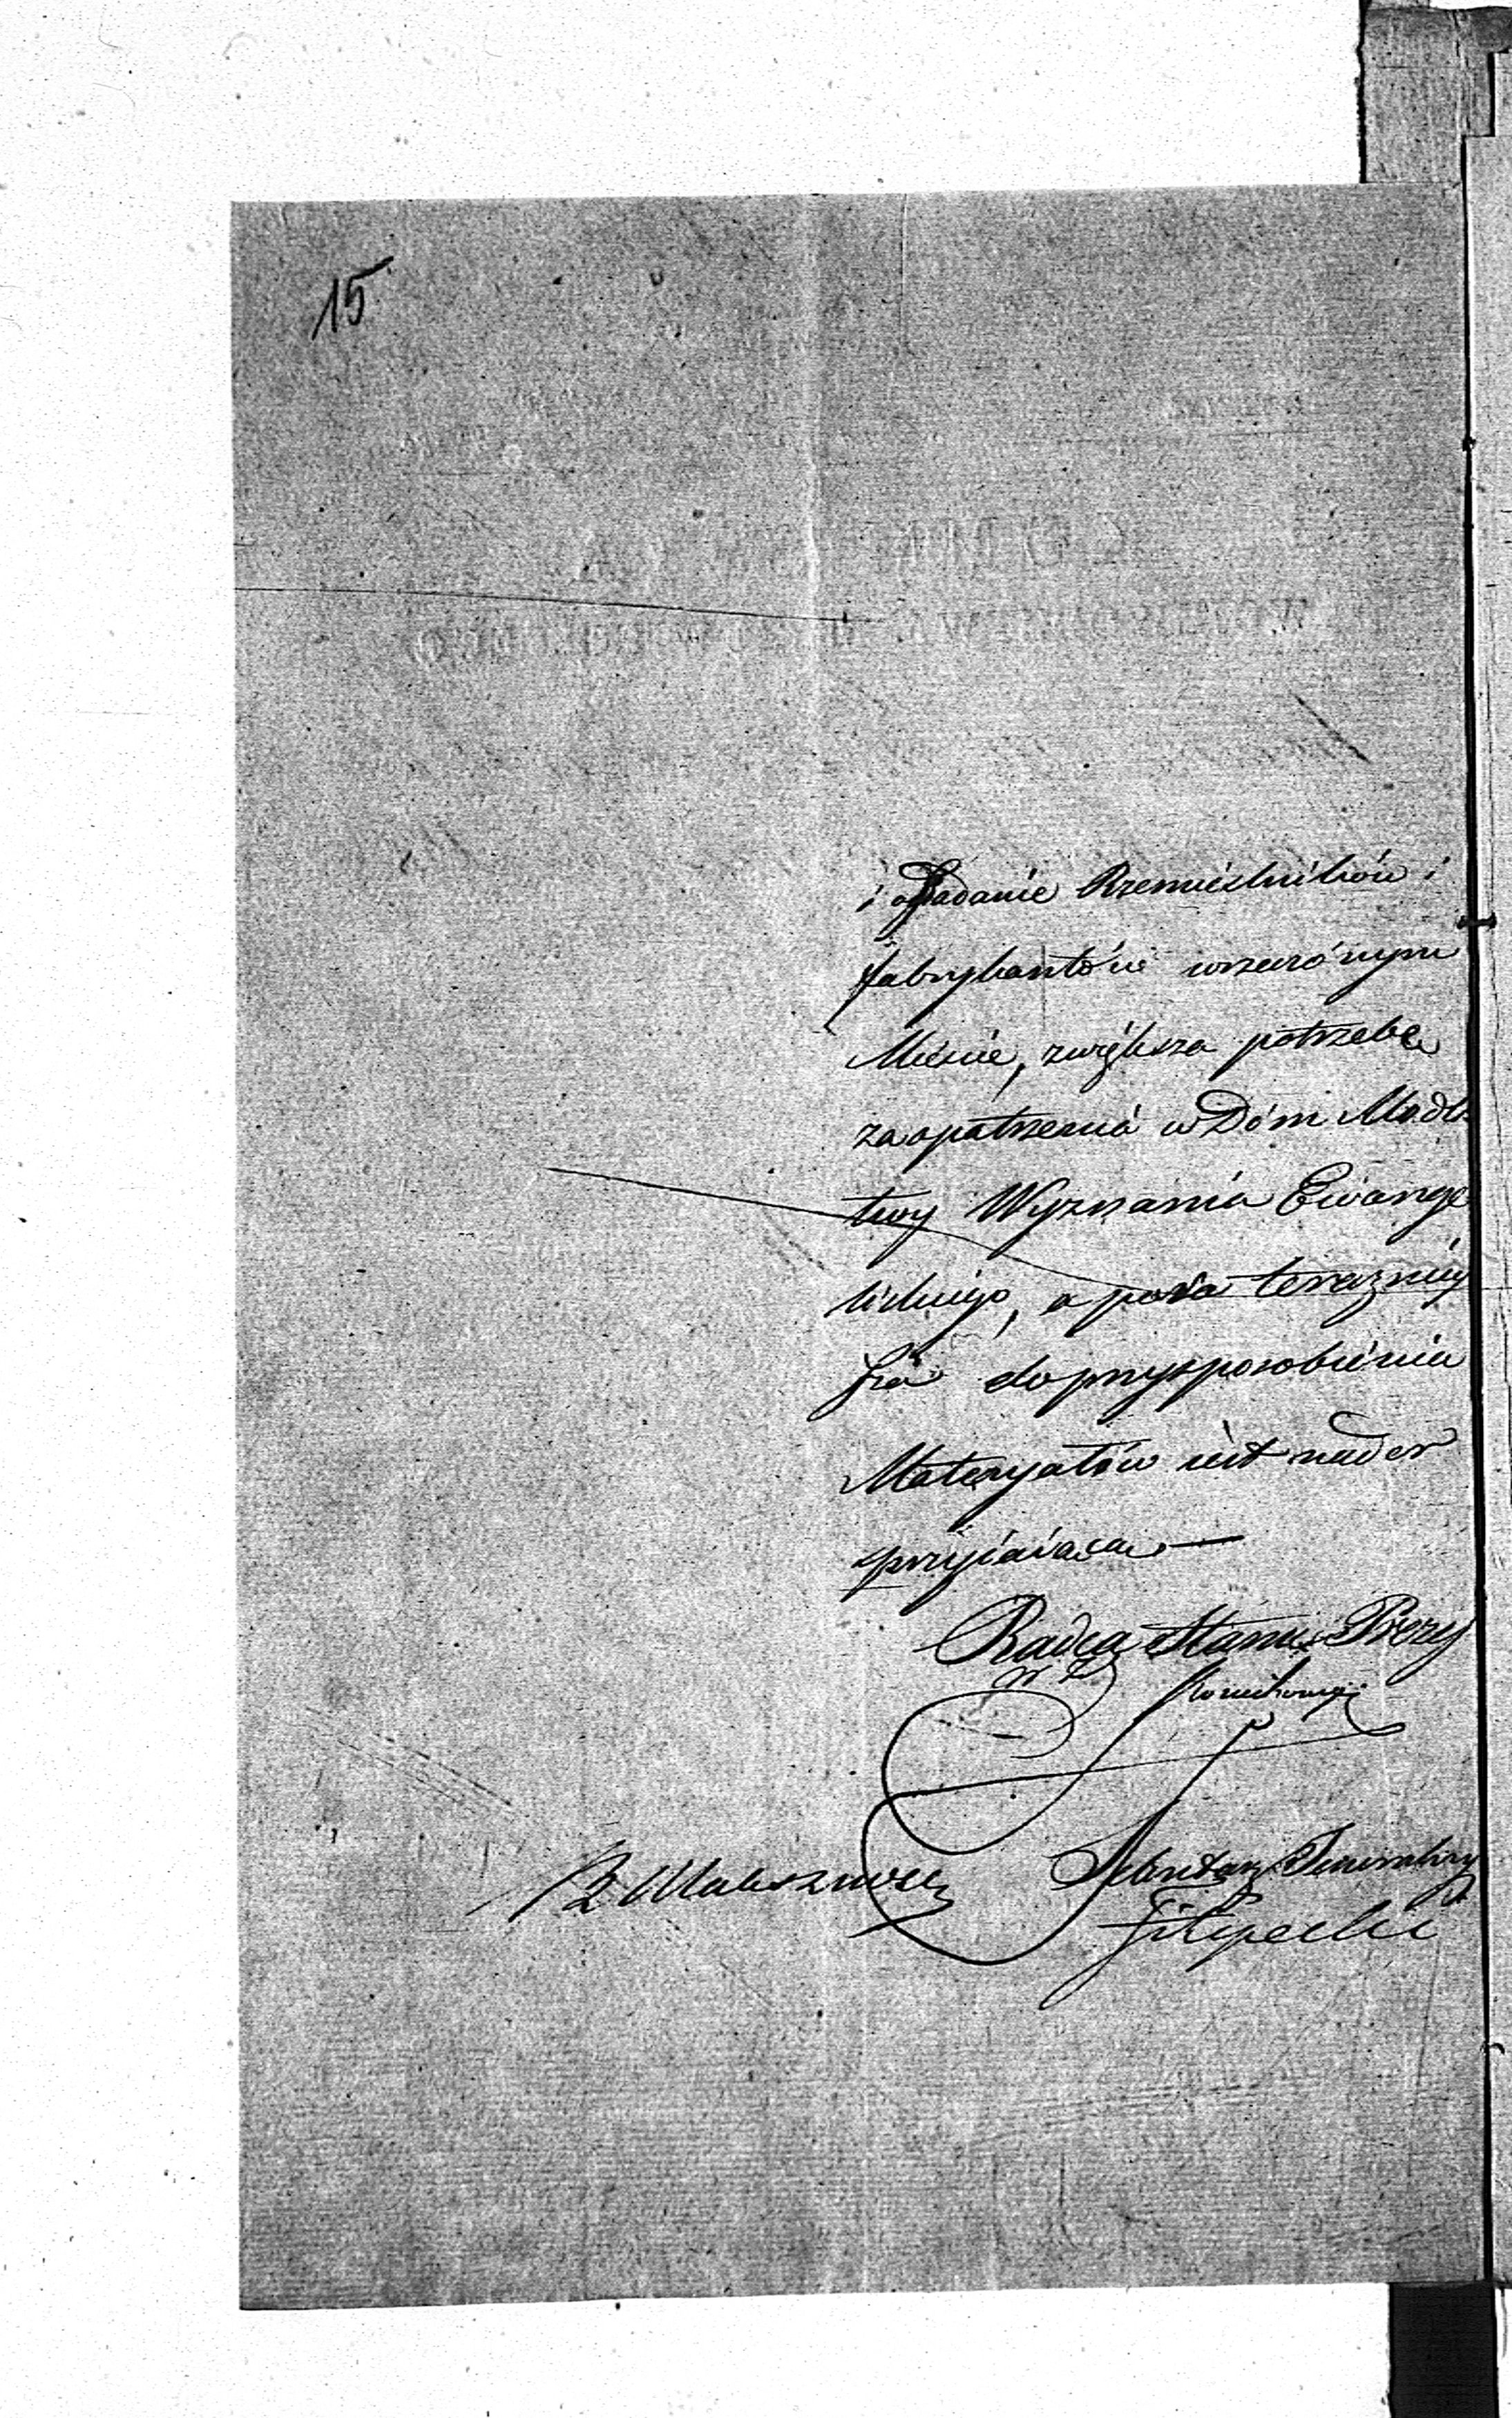 15
i osiadanie Rzemieslników i
fabrykantów wrzeczónym
Miescie, zwiększa potrzebę
zaopatrzenia w Dóm Modli
twy Wyznania Ewange
lickiego, a pora terazniey
sza do przysposobienia
Materyałów iest nader
sprzyiaiaca —
Radca Stanu Prezy
Sekretarz Generalny
Filipecki